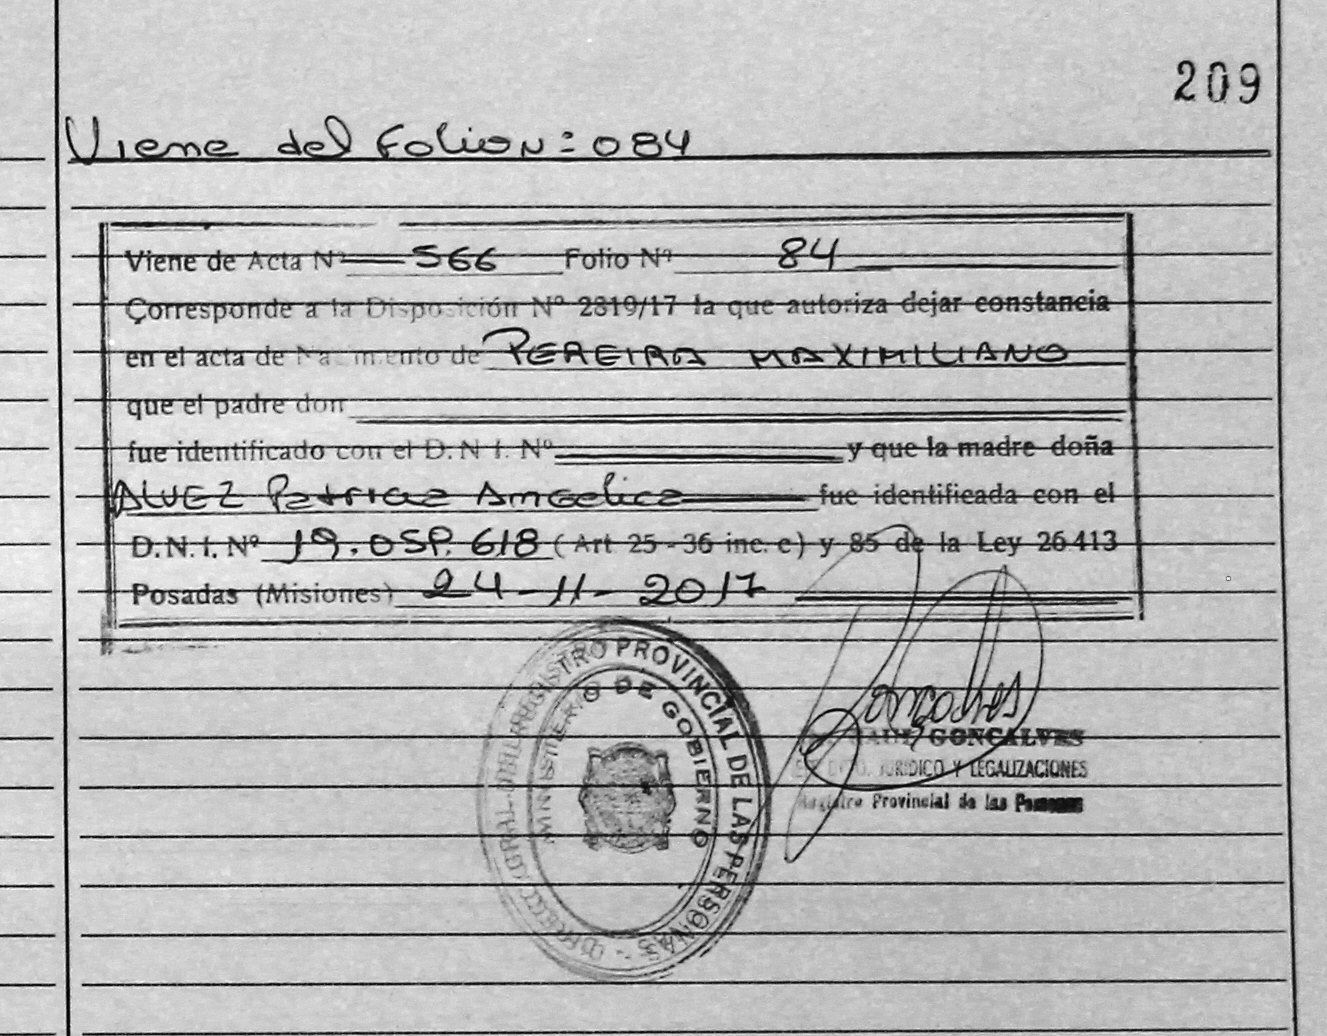 209
Viene del Folio N: 084
Viene de Acta Nº 566 Folio Nº 84
Corresponde a la Disposición Nº 2819/17 la que autoriza dejar constancia
en el acta de Nacimiento de PEREIRA MAXIMILIANO
que el padre don
fue identificado con el D.N.I. Nº y que la madre doña
ALVEZ Patricia Angelica fue identificada con el
D.N.I. Nº 618 (Art 25-36 inc. c) y 85 de la Ley 26413
Posadas (Misiones) 24-11-2017
REGISTRO PROVINCIAL DE LAS PERSONAS
MINISTERIO DE GOBIERNO
GONCALVES
JURIDICO Y LEGALIZACIONES
Registro Provincial de las Personas